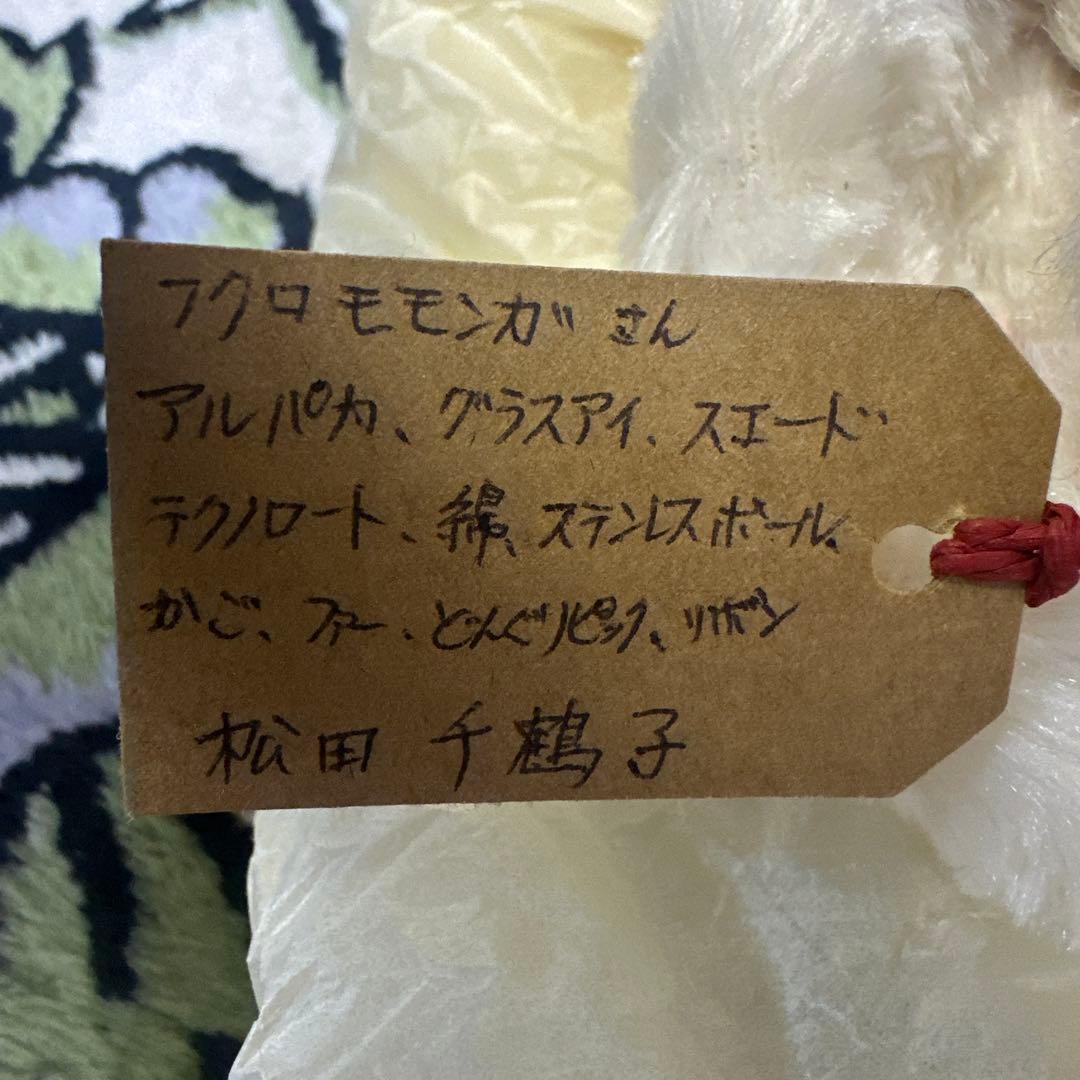 フクロモモンガさん
アルパカ、グラスアイ、スエード
テクノロート、綿、ステンレスボール、
かご、ファー、どんぐりピック、リボン
松田 千鶴子